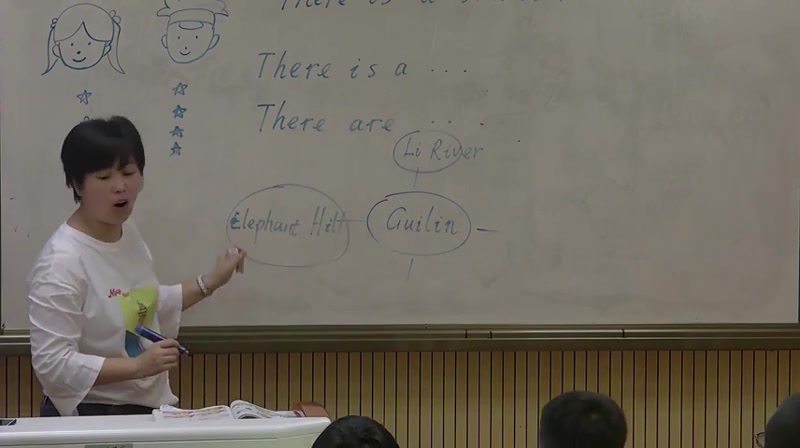 There is a
There is a ...
There are ....
Li River
Elephant Hill
Guilin